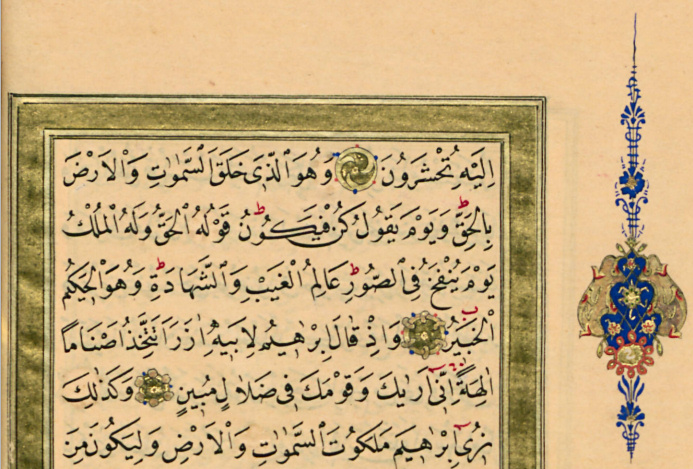 اِلَيْهِ تُحْشَرُونَ وَهُوَ الَّذ۪ى خَلَقَ السَّمٰوَاتِ وَالْاَرْضَ
بِالْحَقِّ ط وَيَوْمَ يَقُولُ كُنْ فَيَكُونُ ط قَوْلُهُ الْحَقُّ وَلَهُ الْمُلْكُ
يَوْمَ يُنْفَخُ فِى الصُّورِ ط عَالِمُ الْغَيْبِ وَالشَّهَادَةِ ط وَهُوَ الْحَك۪يمُ
الْخَب۪يرُ وَاِذْ قَالَ اِبْرٰه۪يمُ لِاَب۪يهِ اٰزَرَ اَتَتَّخِذُ اَصْنَامًا
اٰلِهَةً اِنّ۪ى اَرٰيكَ وَقَوْمَكَ ف۪ى ضَلَالٍ مُب۪ينٍ وَكَذٰلِكَ
نُر۪ى اِبْرٰه۪يمَ مَلَكُوتَ السَّمٰوَاتِ وَالْاَرْضِ وَلِيَكُونَ مِنَ